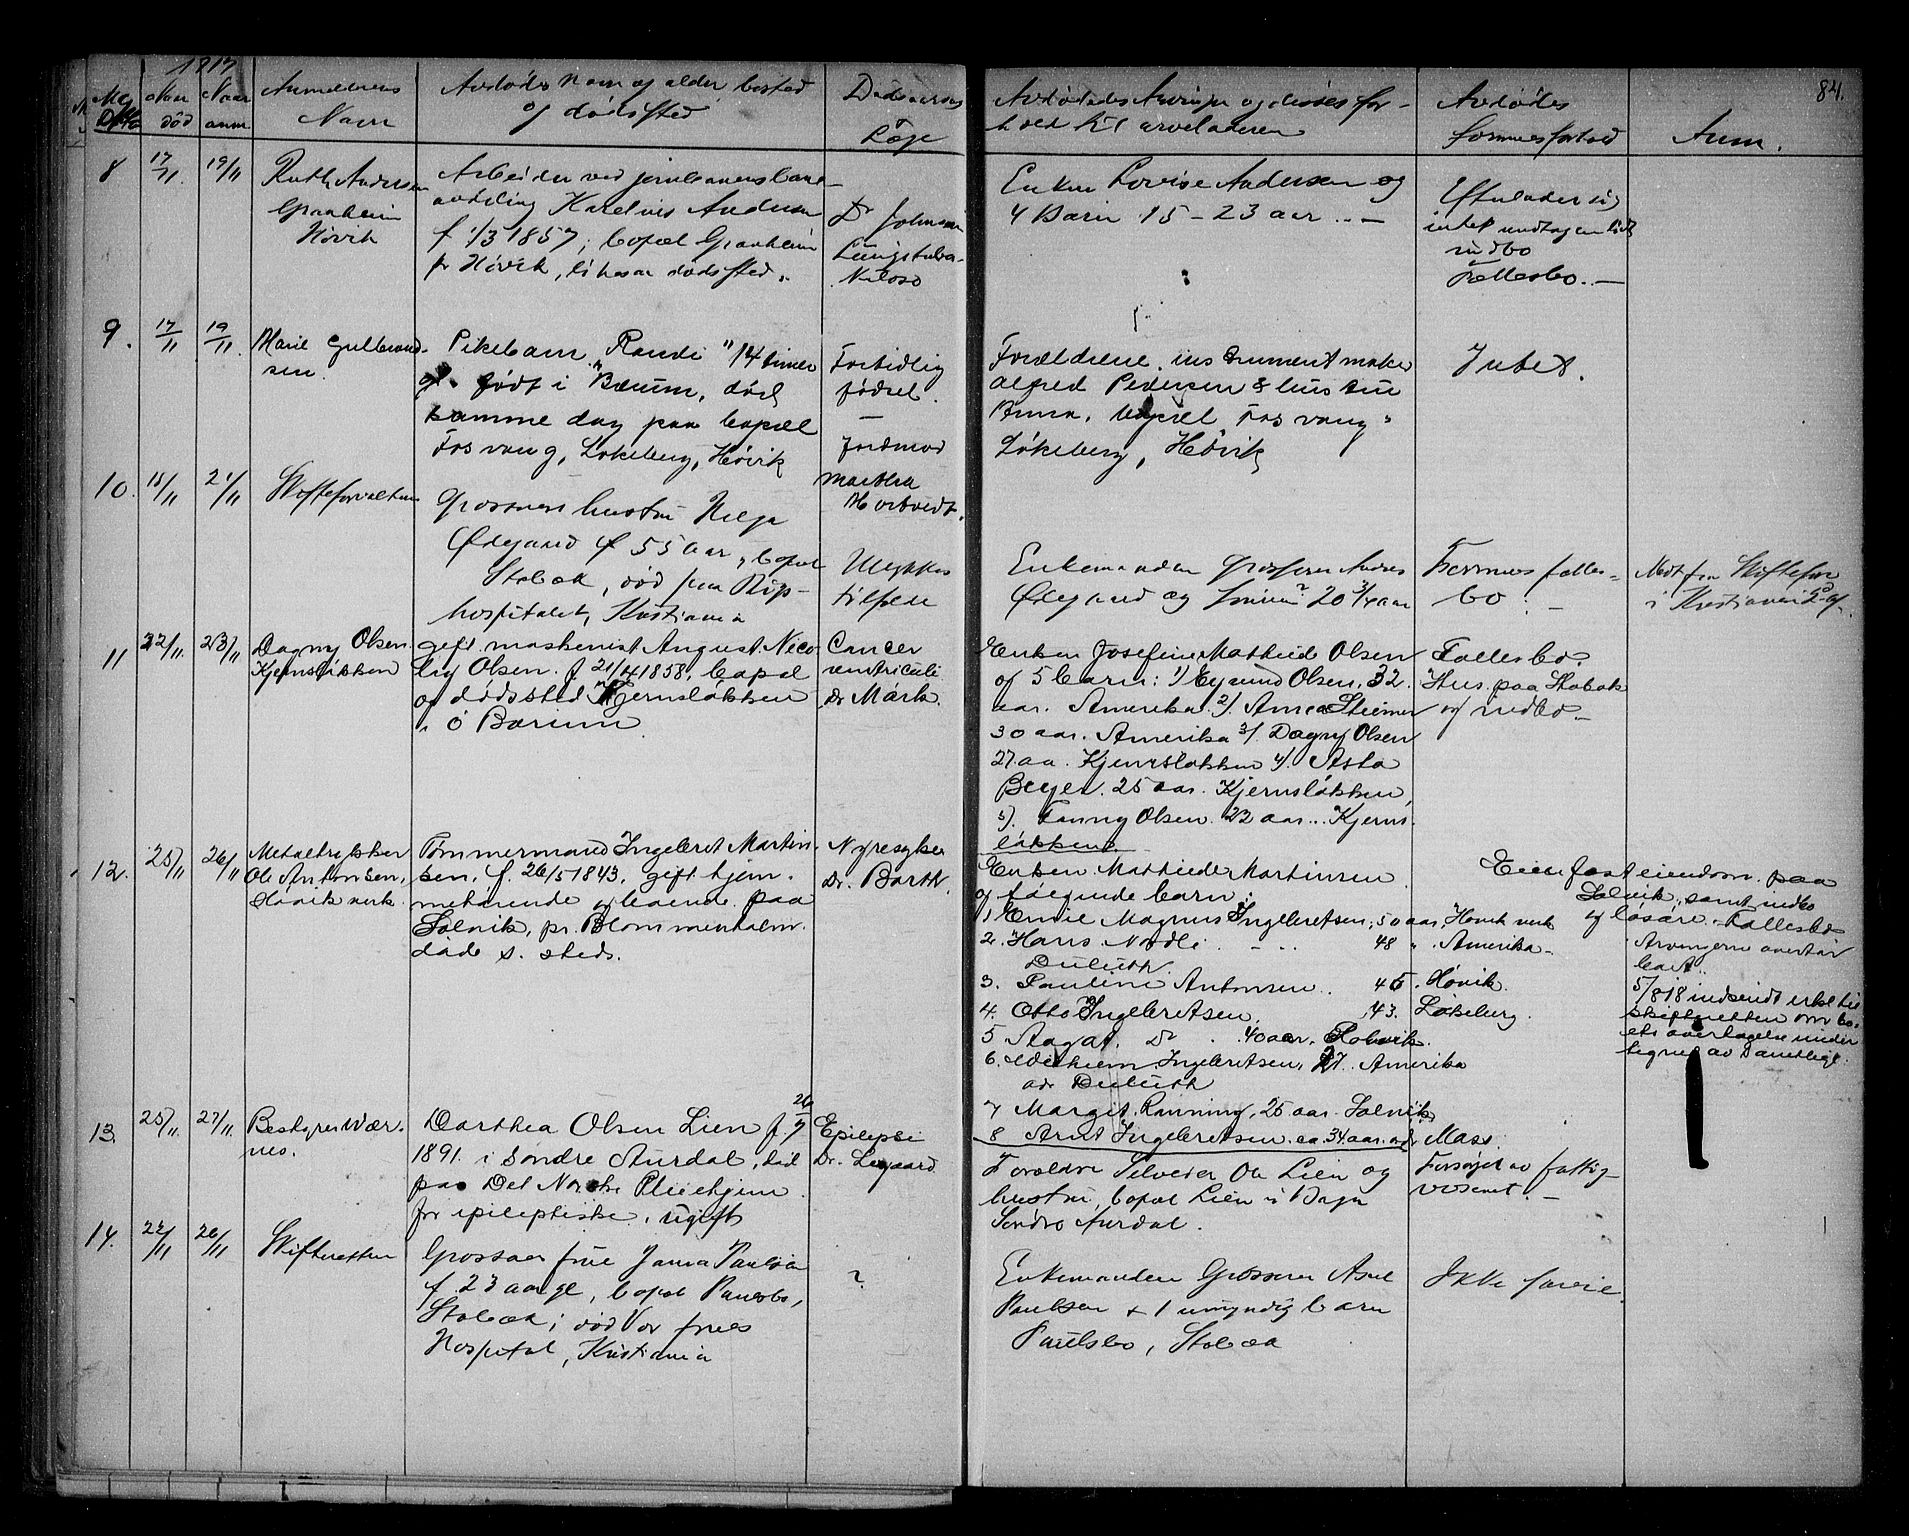 1917
84.
Naar død
Naar anm
Anmelderens Navn
Avdødes Navn og alder bosted og dødssted
Dødsaarsag
Læge
Avdødes Arvinger og disses for-
hold til arveladeren
Avdødes
formuesforhold
Anm.
8
17/11
19/11
Ruth Andersen
Granheim
Høvik
Arbeider ved jernbanens bane-
avdeling Andersen
f 1/3 1857, bopæl Granheim
pr Høvik, dødssted.
Dr Johnsen
Lungetuber-
kulose
Enken Lovise Andersen og
4 Barn 15 - 23 aar
Efterlader sig
intet undtagen lidt
indbo
Fællesbo.
9.
17/11
19/11
Marie Gulbrand-
sen.
Pikebarn "Randi" 14 timer
gl. født i Bærum, død
samme dag paa bopæl
Fosvang, Løkeberg, Høvik
Fortidlig
fødsel.
Jordmod
Martha
Hortvedt.
Forældrene, instrumentmaker
Alfred Pedersen & hustru
Anna, bopæl Fosvang
Løkeberg, Høvik
Intet.
10.
18/11
21/11
Skifteforvalteren
Grosserer hustru Helga
Ødegaard f 55 aar, bopæl
Stabæk, død paa Rigs-
hospitalet, Kristiania
Ulykkes
tilfælde
Enkemanden grosserer Anders
Ødegaard og 20 3/4 aar
Formues fælles-
bo.
Medt fra Skifteforv
i Kristiania
11
22/11
23/11
Dagny Olsen.
Kjernsløkken
gift maskinist August Nico-
lay Olsen. f 21/4 1858, bopæl
og dødssted Kjernsløkken
i ø Bærum
Cancer
ventriculi
Dr Mark.
Enken Josefine Mathild Olsen
og 5 barn: 1) Eyvind Olsen, 32
aar. Amerika 2/. Anna Steimer
30 aar. Amerika 3/. Dagny Olsen
27 aa. Kjernsløkken 4/. Asta
Beyer. 25 aar. Kjernsløkken,
5). Fanny Olsen. 22 aar. Kjerns-
løkken.
Fællesbo.
Hus paa Stabæk
og indbo.
12.
25/11
26/11
Metaltrykker
Ole Antonsen,
Høvik verk.
Tømmermand Ingebret Martin-
sen, f. 26/5 1843, gift hjem-
mehørende og boende paa
Solvik, pr. Blommenholm.
døde s. steds.
Nyresyke
Dr. Barth.
Enken Mathilde Martinsen
og følgende barn:
1 Emil Magnus Ingebretsen, 50 aar, Høvik verk
2. Hans Nordli 48 " Amerika
Duluth.
3. Pauline Antonsen 45. Høvik.
4. Otto Ingebretsen, 43. Løkeberg.
5 Aagot. Do 40 aar, Solvik.
6. Wilhelm Ingebretsen, 27. Amerika
adr Duluth
7 Margit Rønning, 25 aar. Solvik
8 Arnt Ingebretsen. ca 34 aar. adr Mass.
Eier fast eiendom paa
Solvik, samt indbo
og løsøre. Fællesbo
Arvingerne overtar
boet.
5/8 18 indsendt erkl til
skifteretten om bo-
ets overtagelse under-
tegnet av samtlige.
13.
25/11
27/11
Bestyrer Wær-
nes.
Dorthea Olsen Lien f 26/7
1891. i Søndre Aurdal, død
paa Det Norske Pleiehjem
for epileptiske, ugift
Epilepsi
Dr. Legaard.
Forældre Selveier Ole Lien og
hustru, bopæl Lien i Bagn
Søndre Aurdal.
Forsørget av fattig-
væsenet.
14.
22/11
26/11
Skifteretten
Grosserer frue Paulsen
f. 23 aar gl, bopæl Paulsbo,
Stabæk; død Vor frues
Hospital, Kristiania
?
Enkemanden Grosserer Axel
Paulsen + 1 umyndig barn
Paulsbo, Stabæk
Ikke formue.